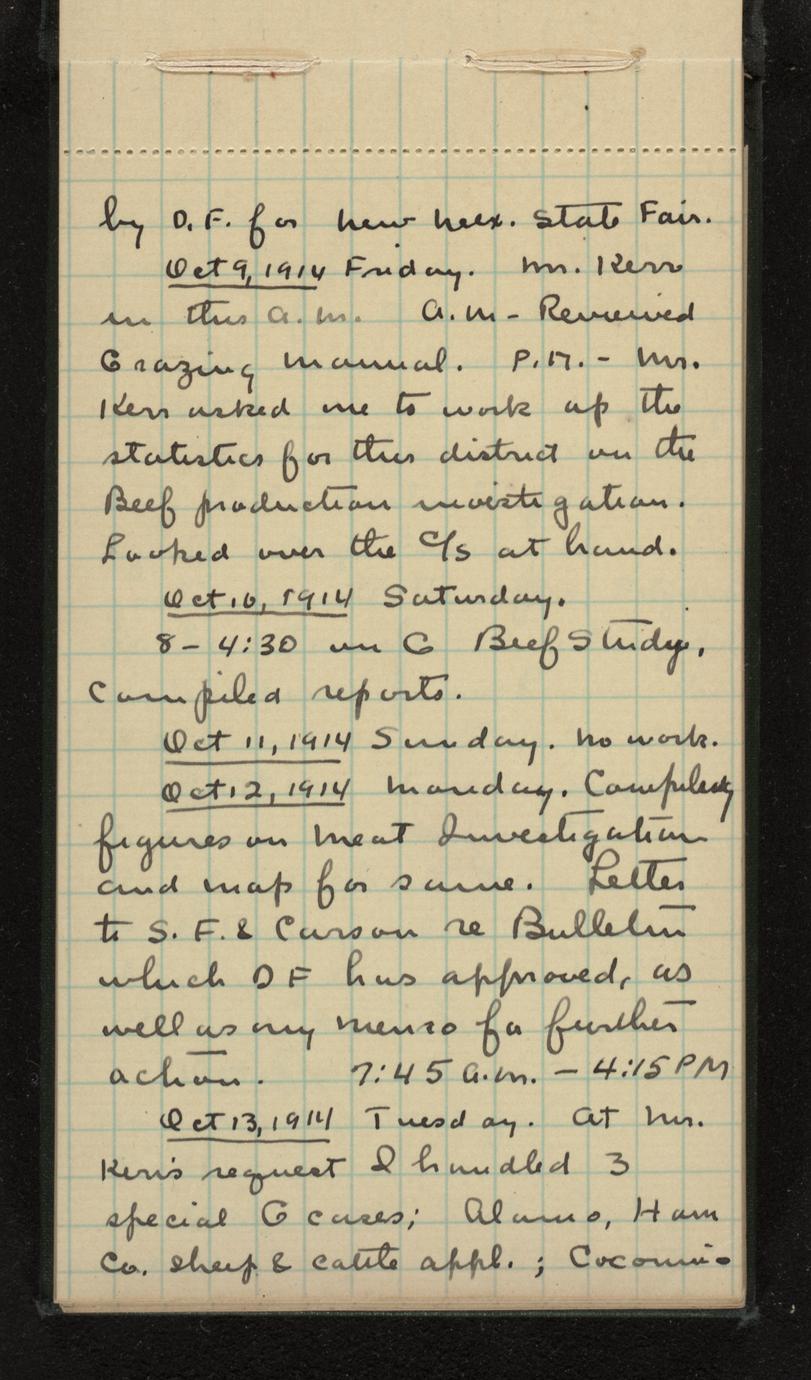 by D.F. for New Mex. State Fair.
Oct 9, 1914 Friday. Mr. Kerr
in this a.m. A.M - Reviewed
Grazing Manual. P.M. - Mr.
Kerr asked me to work up the
statistics for this district on the
Beef production investigation.
Looked over the C/s at hand.
Oct 10, 1914 Saturday.
8 - 4:30 on G Beef Study,
compiled reports.
Oct 11, 1914 Sunday. No work.
Oct 12, 1914 Monday. Compiled
figures on Meat Investigation
and map for same. Letter
to S. F. & Carson re Bulletin
which DF has approved, as
well as my memo for further
action. 7:45 a.m. - 4:15 PM
Oct 13, 1914 Tuesday. At Mr.
Kerr's request I handled 3
special G cases; Alamo, Ham
Co. sheep & cattle appl. ; Coconino